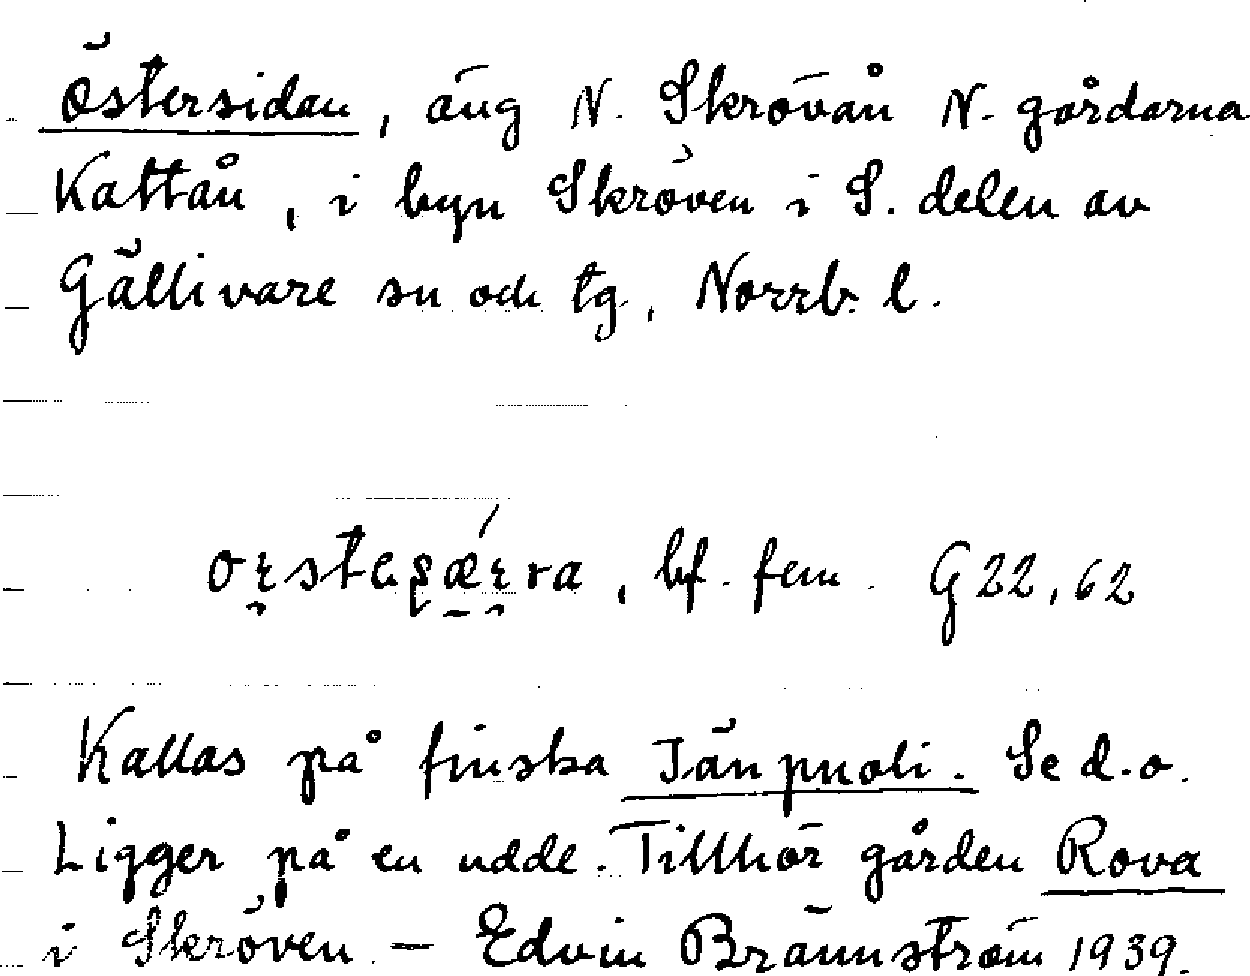 Östersidan, äng N. Skrövån N. gårdarna
Kattån, i byn Skröven i S. delen av
Gällivare sn och tg, Norrb. l.
bf. fem. G22,62
Kallas på finska Tänpuoli. Se d.o.
Ligger på en udde. Tillhör gården Rova
i Skröven. — Edvin Brännström 1939.